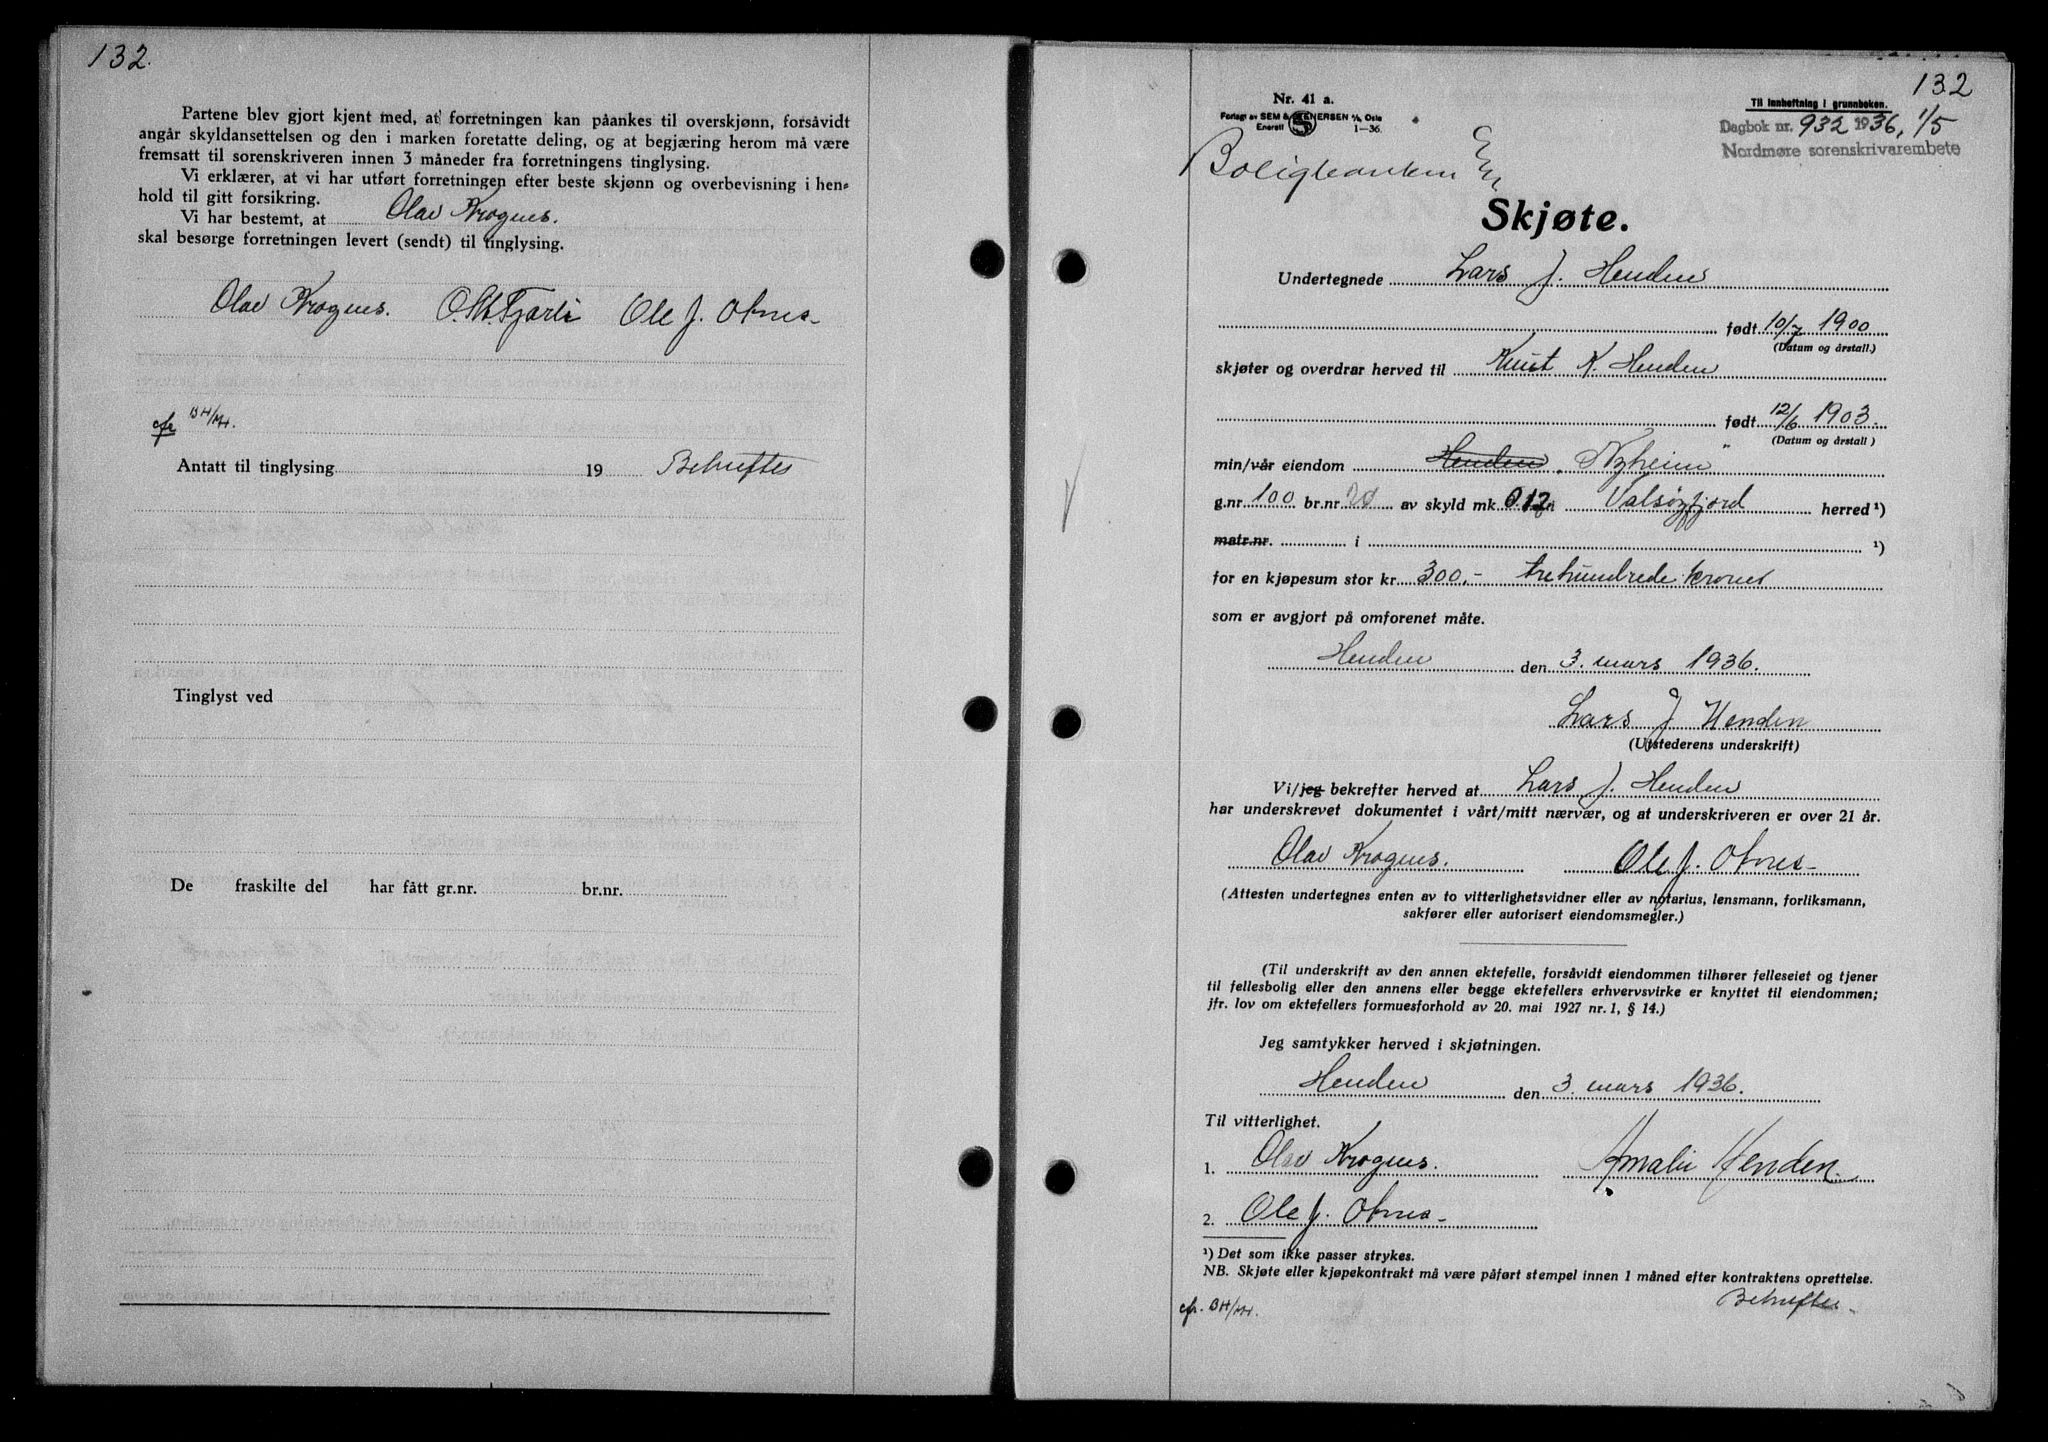 132.
Partene blev gjort kjent med, at forretningen kan påankes til overskjønn, forsåvidt
angår skyldansettelsen og den i marken foretatte deling, og at begjæring herom må være
fremsatt til sorenskriveren innen 3 måneder fra forretningens tinglysing.
Vi erklærer, at vi har utført forretningen efter beste skjønn og overbevisning i hen-
hold til gitt forsikring.
Vi har bestemt, at Olav Krognes.
skal besørge forretningen levert (sendt) til tinglysing.
Olav Krognes. Ole J. Otnes
cfr BH/MH.
Antatt til tinglysing 19 Bekreftes
Tinglyst ved
De fraskilte del har fått gr.nr. br.nr.
132
Nr. 41 a.
Til innheftning i grunnboken.
Forlagt av SEM & STENERSEN A/S, Oslo
Enerett S 1—36.
Dagbok nr. 932 1936, 1/5
Nordmøre sorenskrivarembete
Boligbanken
Skjøte.
Undertegnede Lars J. Henden
født 10/7 1900
(Datum og årstall.)
skjøter og overdrar herved til Knut K. Henden
født 12/6 1903.
(Datum og årstall)
min/vår eiendom Henden, "Nyheim"
g.nr 100 br.nr 20 av skyld mk 0.12 i Valsøyfjord herred ¹)
matr.nr. i ¹)
for en kjøpesum stor kr 300.- trehundrede kroner
som er avgjort på omforenet måte.
Henden den 3. mars 1936.
Lars J Henden
(Utstederens underskrift)
Vi/jeg bekrefter herved at Lars J. Henden
har underskrevet dokumentet i vårt/mitt nærvær, og at underskriveren er over 21 år.
Olav Krognes. Ole J. Otnes
(Attesten undertegnes enten av to vitterlighetsvidner eller av notarius, lensmann, forliksmann,
sakfører eller autorisert eiendomsmegler.)
(Til underskrift av den annen ektefelle, forsåvidt eiendommen tilhører felleseiet og tjener
til fellesbolig eller den annens eller begge ektefellers erhvervsvirke er knyttet til eiendommen;
jfr. lov om ektefellers formuesforhold av 20. mai 1927 nr. 1, § 14.)
Jeg samtykker herved i skjøtningen.
Henden den 3. mars 1936.
Til vitterlighet.
1. Olav Krognes. Amalie Henden.
2. Ole J. Otnes
¹) Det som ikke passer strykes.
NB. Skjøte eller kjøpekontrakt må være påført stempel innen 1 måned efter kontraktens oprettelse.
Bekreftes
cfr. BH/MH.